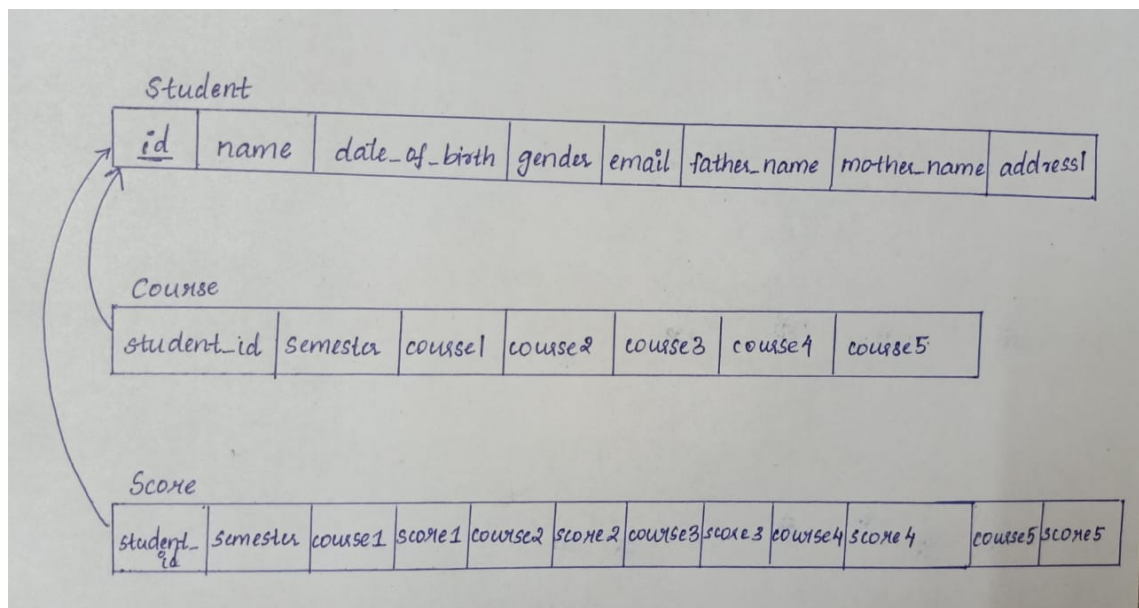 Student
id name date_of_birth gender email father_name mother_name address1
Course
student_id semester course1 course2 course3 course4 course5
Score
student_id semester course1 score1 course2 score2 course3 score3 course4 score4 course5 score5